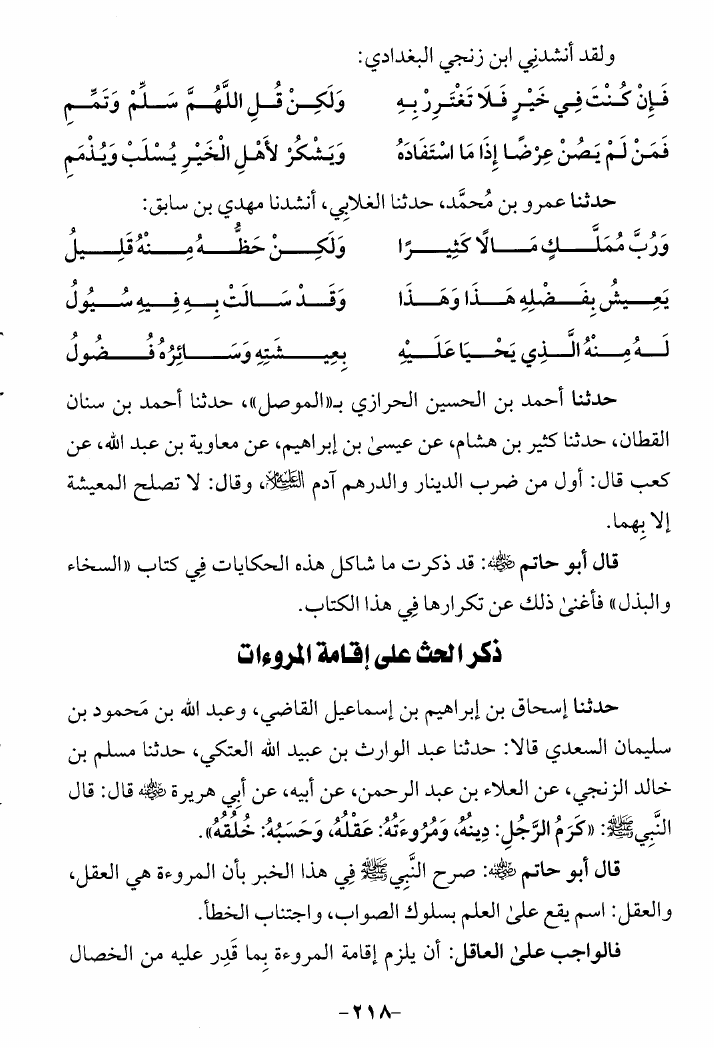 ولقد أنشدنِي ابن زنجي البغدادي:
فَإِنْ كُنْتَ فِي خَيْرٍ فَلَا تَغْتَرِرْ بِهِ وَلَكِنْ قُلِ اللَّهُمَّ سَلِّمْ وَتَمِّمِ
فَمَنْ لَمْ يَصُنْ عِرْضًا إِذَا مَا اسْتَفَادَهُ وَيَشْكُرْ لأَهْلِ الْخَيْرِ يُسْلَبْ وَيُذْمَمِ
حدثنا عمرو بن مُحمَّد، حدثنا الغلابِي، أنشدنا مهدي بن سابق:
وَرُبَّ مُمَلَّكٍ مَالًا كَثِيرًا وَلَكِنْ حَظُّهُ مِنْهُ قَلِيلُ
يَعِيشُ بِفَضْلِهِ هَذَا وَهَذَا وَقَدْ سَالَتْ بِهِ فِيهِ سُيُولُ
لَهُ مِنْهُ الَّذِي يَحْيَا عَلَيْهِ بِعِيشَتِهِ وَسَائِرُهُ فُضُولُ
حدثنا أحمد بن الحسين الحرازي بـ«الموصل»، حدثنا أحمد بن سنان
القطان، حدثنا كثير بن هشام، عن عيسىٰ بن إبراهيم، عن معاوية بن عبد الله، عن
كعب قال: أول من ضرب الدينار والدرهم آدم عليه السلام، وقال: لا تصلح المعيشة
إلا بِهما.
قال أبو حاتم رضي الله عنه: قد ذكرت ما شاكل هذه الحكايات فِي كتاب «السخاء
والبذل» فأغنىٰ ذلك عن تكرارها فِي هذا الكتاب.
ذكر الحث على إقامة المروءات
حدثنا إسحاق بن إبراهيم بن إسماعيل القاضي، وعبد الله بن مَحمود بن
سليمان السعدي قالا: حدثنا عبد الوارث بن عبيد الله العتكي، حدثنا مسلم بن
خالد الزنجي، عن العلاء بن عبد الرحمن، عن أبيه، عن أبِي هريرة رضي الله عنه قال: قال
النَّبِي ﷺ: «كَرَمُ الرَّجُلِ: دِينُهُ، وَمُرُوءَتُهُ: عَقْلُهُ، وَحَسَبُهُ: خُلُقُهُ».
قال أبو حاتم رضي الله عنه: صرح النَّبِي ﷺ فِي هذا الخبر بأن المروءة هي العقل،
والعقل: اسم يقع علىٰ العلم بسلوك الصواب، واجتناب الخطأ.
فالواجب علىٰ العاقل: أن يلزم إقامة المروءة بِما قَدِر عليه من الخصال
-٢١٨-